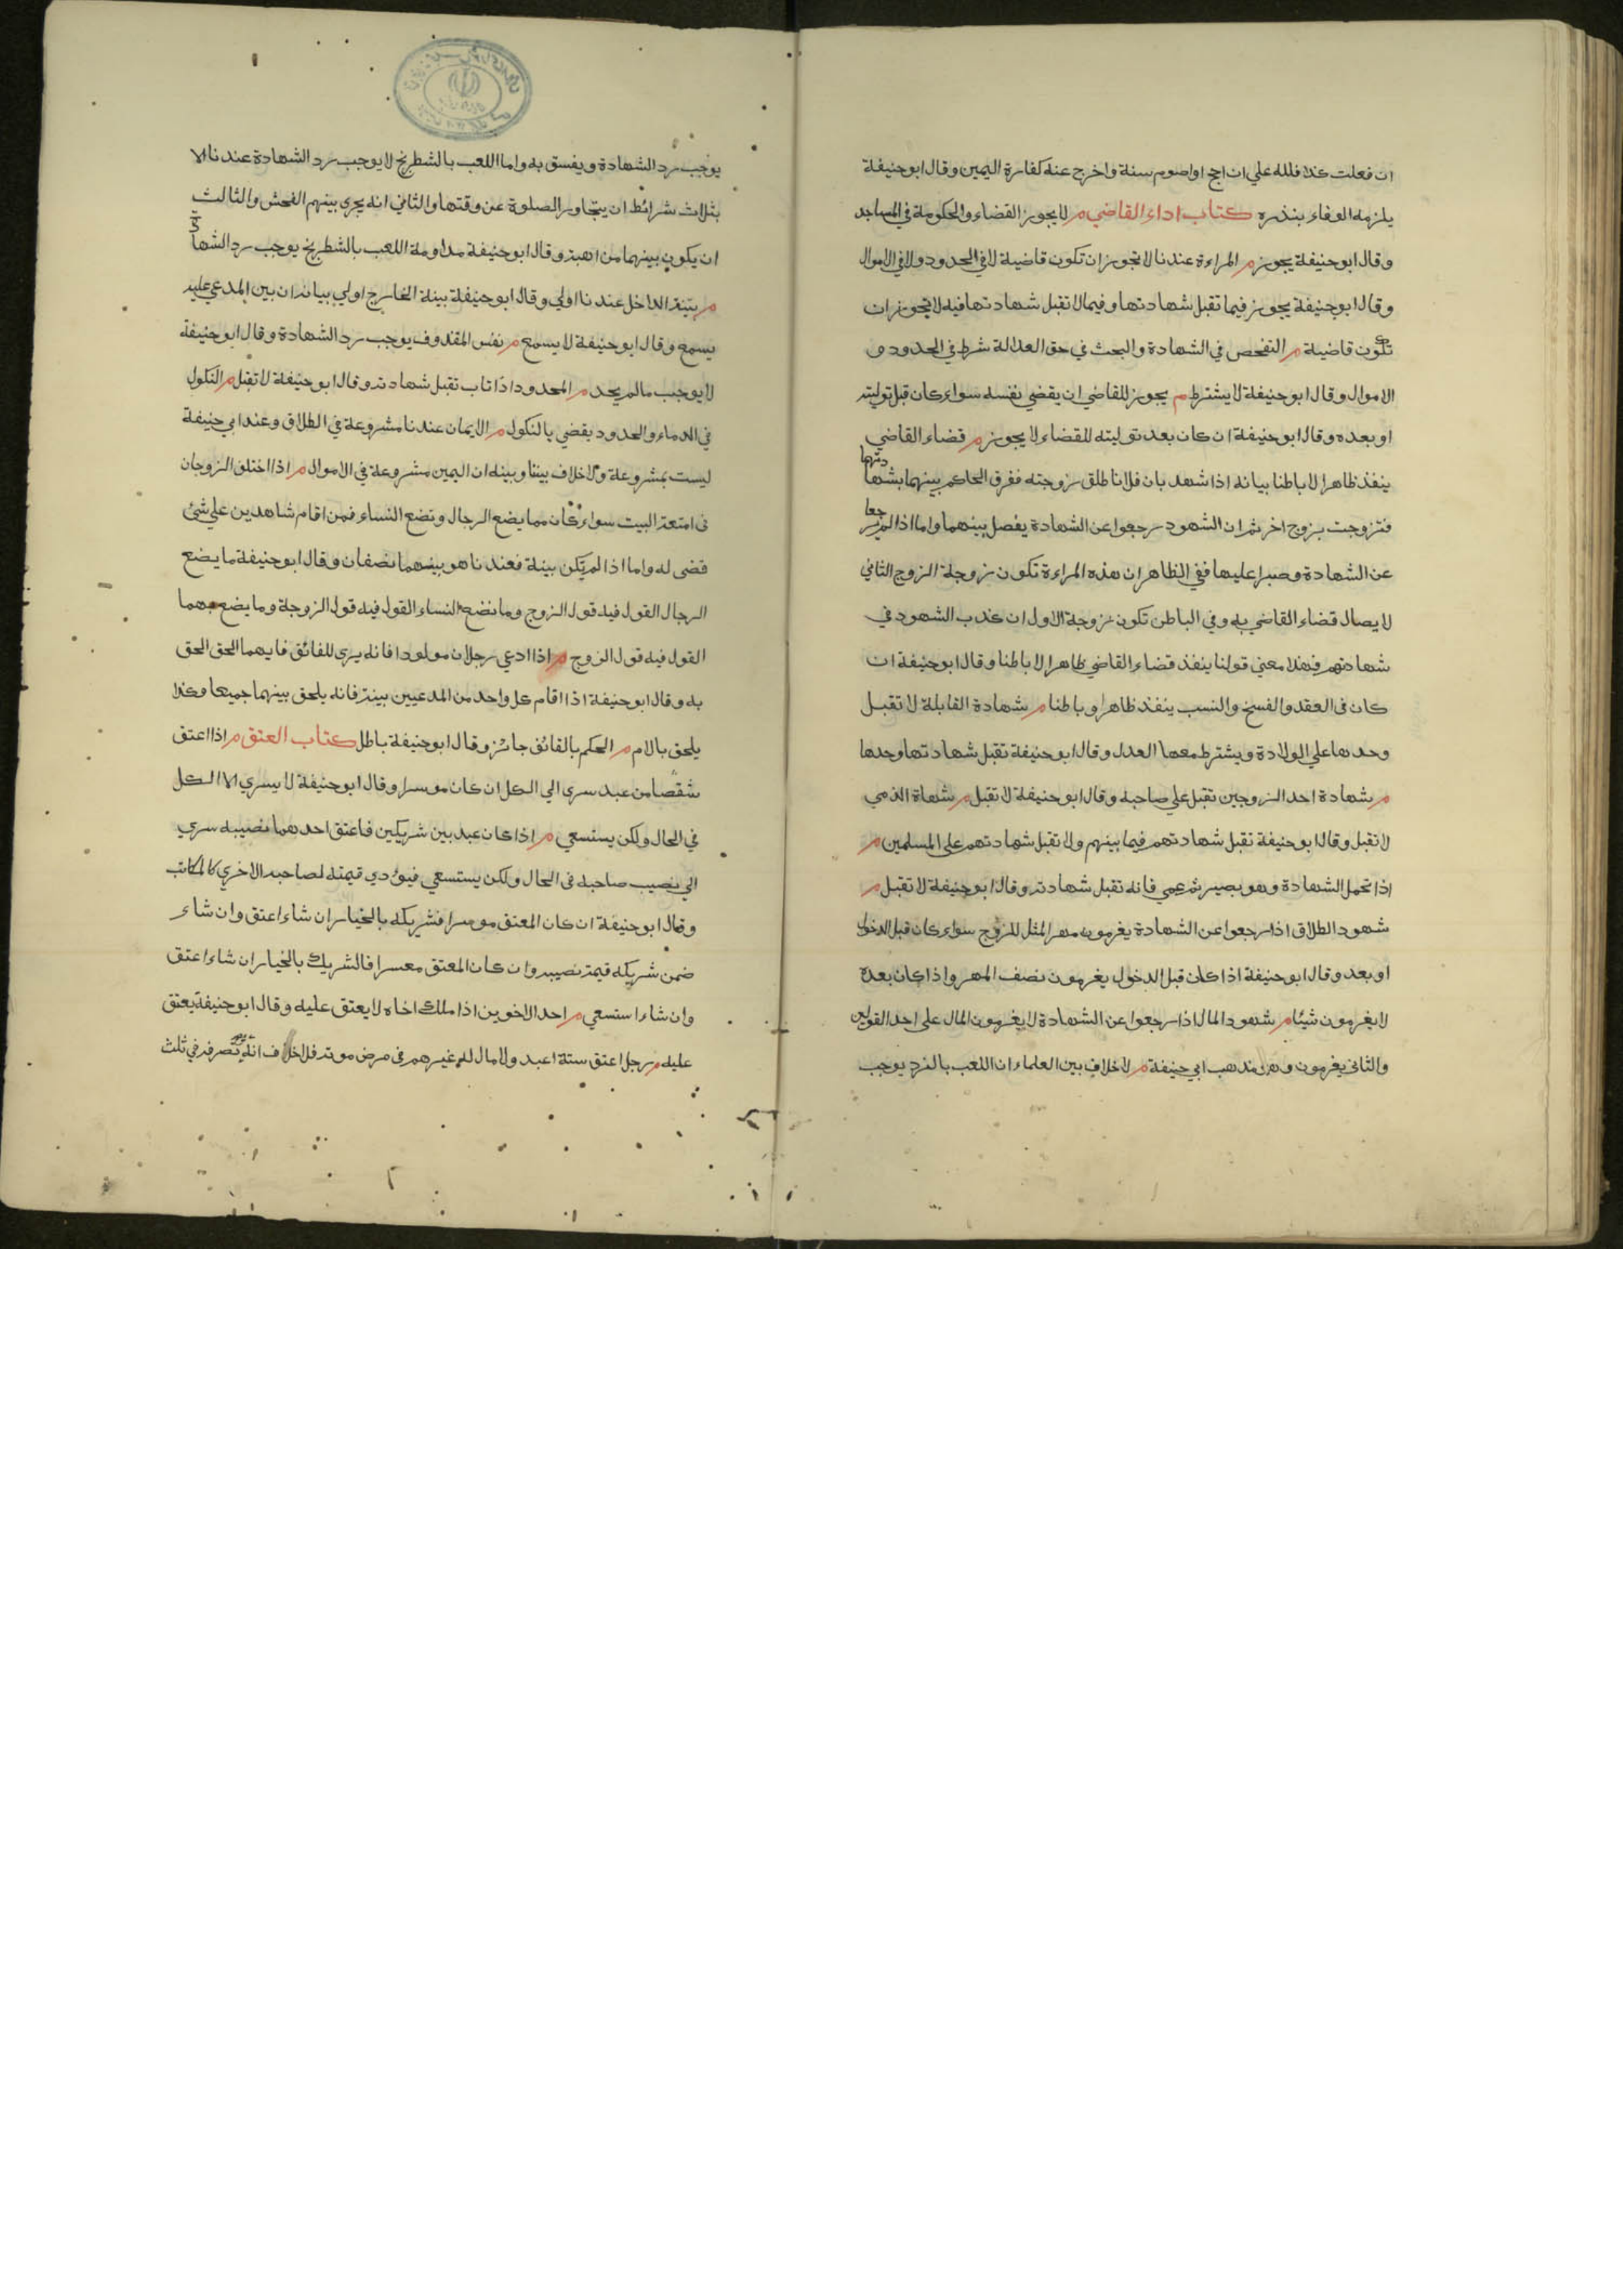 ان فعلت كذا فلله علي ان احج او اصوم سنة واخرج عنه كفارة اليمين وقال ابو حنيفة
يلزمه الوفاء بنذره كتاب اداء القاضي م لا يجوز القضاء والحكومة في المساجد
وقال ابو حنيفة يجوز م المراءة عندنا لا تجوز ان تكون قاضية لا في الحدود ولا في الاموال
وقال ابو حنيفة يجوز فيما تقبل شهادتها وفيما لا تقبل شهادتها فيه لا تجوز ان
تكون قاضية م التفحص في الشهادة والبحث في حق العدالة شرط في الحدود و
الاموال وقال ابو حنيفة لا يشترط م يجوز للقاضي ان يقضي نفسه سواء كان قبل توليته
او بعده وقال ابو حنيفة ان كان بعد توليته للقضاء لا يجوز م قضاء القاضي
ينفذ ظاهرا لا باطنا بيانه اذا شهد بان فلانا طلق زوجته ففرق الحاكم بينهما بشهادتهما
فتزوجت بزوج اخر ثم ان الشهود رجعوا عن الشهادة يفصل بينهما واما اذا لم يرجعا
عن الشهادة وصبرا عليها ففي الظاهر ان هذه المراءة تكون زوجة الزوج الثاني
لايصال قضاء القاضي به وفي الباطن تكون زوجة الاول ان كذب الشهود في
شهادتهم فهذا معني قولنا ينفذ قضاء القاضي ظاهرا لا باطنا وقال ابو حنيفة ان
كان في العقد والفسخ والنسب ينفذ ظاهرا وباطنا م شهادة القابلة لا تقبل
وحدها علي الولادة ويشترط معها العدل وقال ابو حنيفة تقبل شهادتها وحدها
م شهادة احد الزوجين تقبل علي صاحبه وقال ابو حنيفة لا تقبل م شهاة الذمي
لا تقبل وقال ابو حنيفة تقبل شهادتهم فيما بينهم ولا تقبل شهادتهم على المسلمين م
اذا تحمل الشهادة وهو بصير ثم عمي فانه تقبل شهادته وقال ابو حنيفة لا تقبل م
شهود الطلاق اذا رجعوا عن الشهادة يغرمون مهر المثل للزوج سواء كان قبل الدخول
او بعد وقال ابو حنيفة اذا كان قبل الدخول يغرمون نصف المهر واذا كان بعده
لا يغرمون شيئا م شهود المال اذا رجعوا عن الشهادة لا يغرمون المال على احد القولين
والثاني يغرمون وهو مذهب ابي حنيفة م لا خلاف بين العلماء ان اللعب بالنرد يوجب
يوجب رد الشهادة ويفسق به واما اللعب بالشطرنج لا يوجب رد الشهادة عندنا الا
بثلاث شرائط ان يتجاوز الصلوة عن وقتها والثاني انه يجري بينهم الفحش والثالث
ان يكون بينهما مراهبة وقال ابو حنيفة مداومة اللعب بالشطرنج يوجب رد الشهادة
م بينة الداخل عندنا اولي وقال ابو حنيفة بينة الخارج اولي بيانه ان بين المدعي عليه
يسمع وقال ابو حنيفة لا يسمع م نفس المقذوف يوجب رد الشهادة وقال ابو حنيفة
لا يوجب ما لم يحد م المحدود اذا تاب تقبل شهادته وقال ابو حنيفة لا تقبل م النكول
في الدماء والحدود يقضي بالنكول م الايمان عندنا مشروعة في الطلاق وعند ابي حنيفة
ليست بمشروعة ولا خلاف بيننا وبينه ان اليمين مشروعة في الاموال م اذا اختلف الزوجان
في امتعة البيت سواء كان مما يضع الرجال وتضع النساء فمن اقام شاهدين علي شئ
قضى له واما اذا لم يكن بينة فعندنا هو بينهما نصفان وقال ابو حنيفة ما يضع
الرجال القول فيه قول الزوج وما تضع النساء القول فيه قول الزوجة وما يضع بهما
القول فيه قول الزوج م اذا ادعي رجلان مولودا فانه يرى للقائف فايهما الحق الحق
به وقال ابو حنيفة اذا اقام كل واحد من المدعيين بينة فانه يلحق بينهما جميعا وكذا
يلحق بالام م الحكم بالقائف جائز وقال ابو حنيفة باطل كتاب العتق م اذا اعتق
شقصا من عبد سرى الي الكل ان كان موسرا وقال ابو حنيفة لا يسري الا الكل
في الحال ولكن يستسعي م اذا كان عبد بين شريكين فاعتق احدهما نصيبه سري
الي نصيب صاحبه في الحال ولكن يستسعي فيؤدي قيمته لصاحبه الاخري كالمكاتب
وقال ابو حنيفة ان كان المعتق موسرا فشريكه بالخيار ان شاء اعتق وان شاء
ضمن شريكه قيمة نصيبه وان كان المعتق معسرا فالشريك بالخيار ان شاء اعتق
وان شاء استسعي م احد الاخوين اذا ملك اخاه لا يعتق عليه وقال ابو حنيفة يعتق
عليه م رجل اعتق ستة اعبد ولا مال له غيرهم في مرض موته فلا خلاف انه تصرفه في ثلث